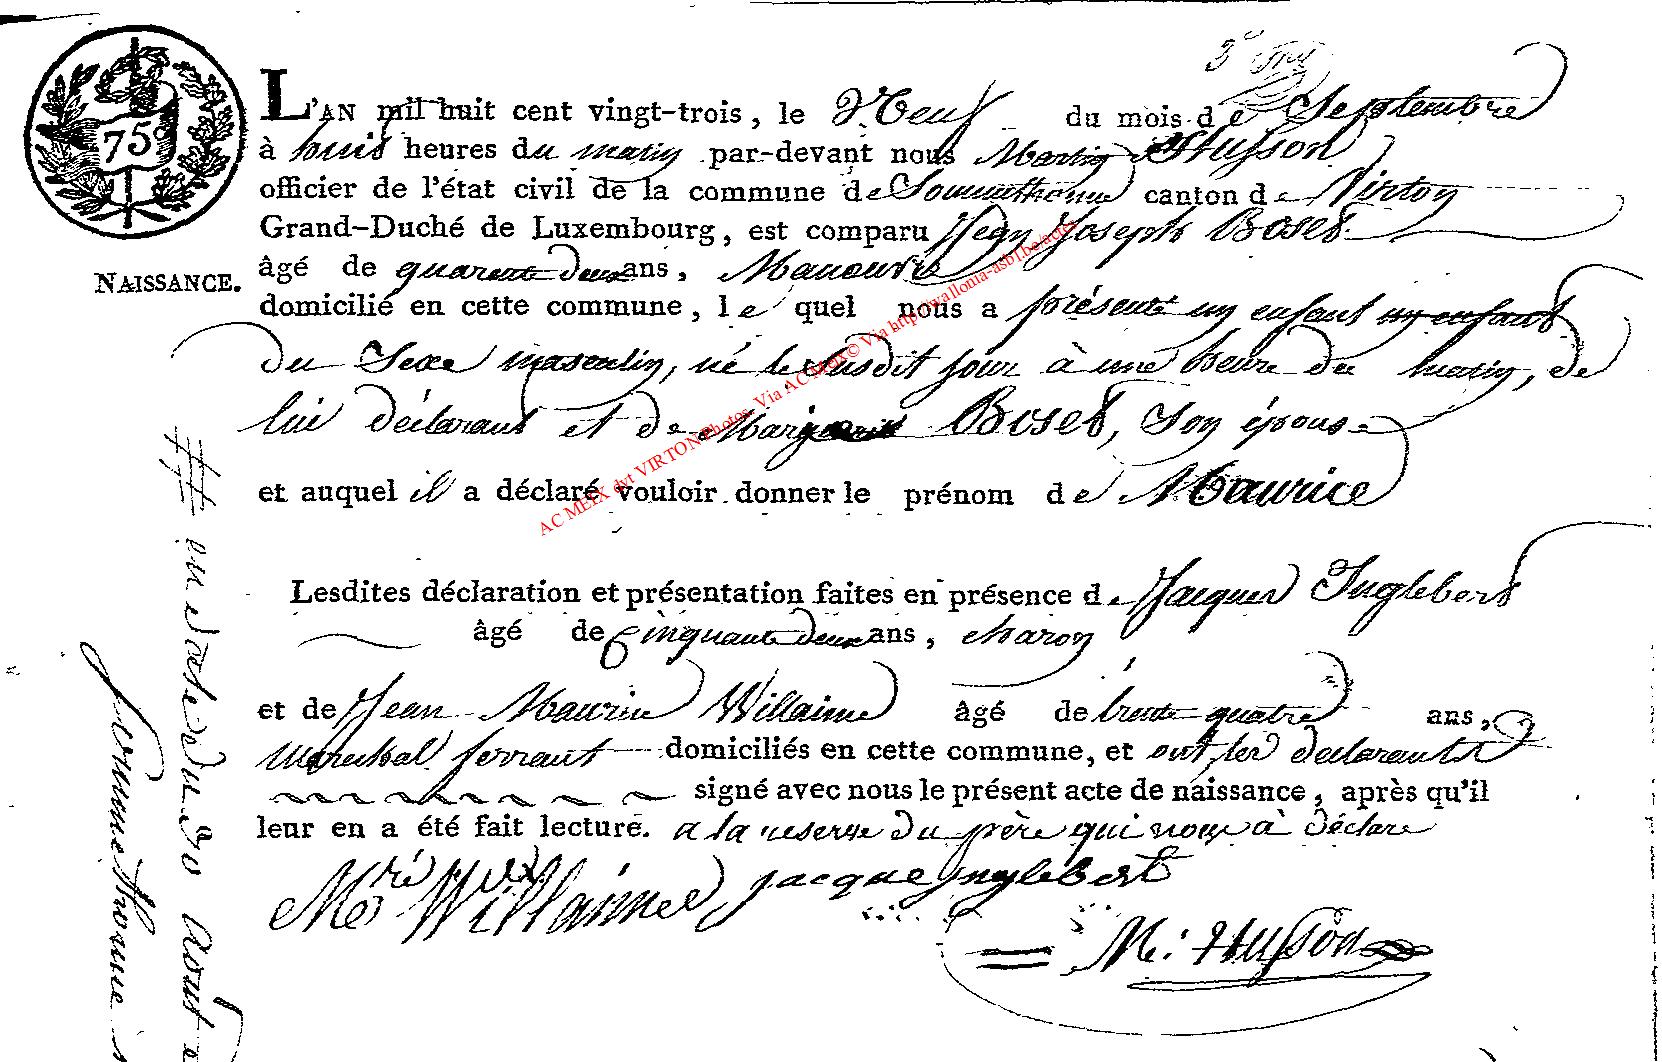 75
L'AN mil huit cent vingt-trois, le Neuf du mois de Septembre
à huit heures du matin par-devant nous Martin Husson
officier de l'état civil de la commune de Sommethonne canton de Virton
Grand-Duché de Luxembourg, est comparu Jean Joseph Boset
NAISSANCE.
âgé de quarente deux ans, Manouvrie
domicilié en cette commune, le quel nous a présenté un enfant un enfant
du Sexe masculin, né le susdit jour à une heure du matin, de
lui déclarant et de Marguerite Boset, Son épouse
et auquel il a déclaré vouloir donner le prénom de Maurice
Lesdites déclaration et présentation faites en présence de Jacques Inglebert
âgé de Cinquante deux ans, charon
et de Jean Maurice Willaime âgé de trente quatre ans,
Marechal ferrant domiciliés en cette commune, et ont les declarants
signé avec nous le présent acte de naissance, après qu'il
leur en a été fait lecture. a la reserve du père qui nous a déclare
Willaime jacque Inglebert
M: Husson
en date du 30 Aout
sommethonne
AC MEIX dvt VIRTON Photos Via AC Meix© Via http://wallonia-asbl.be/actes